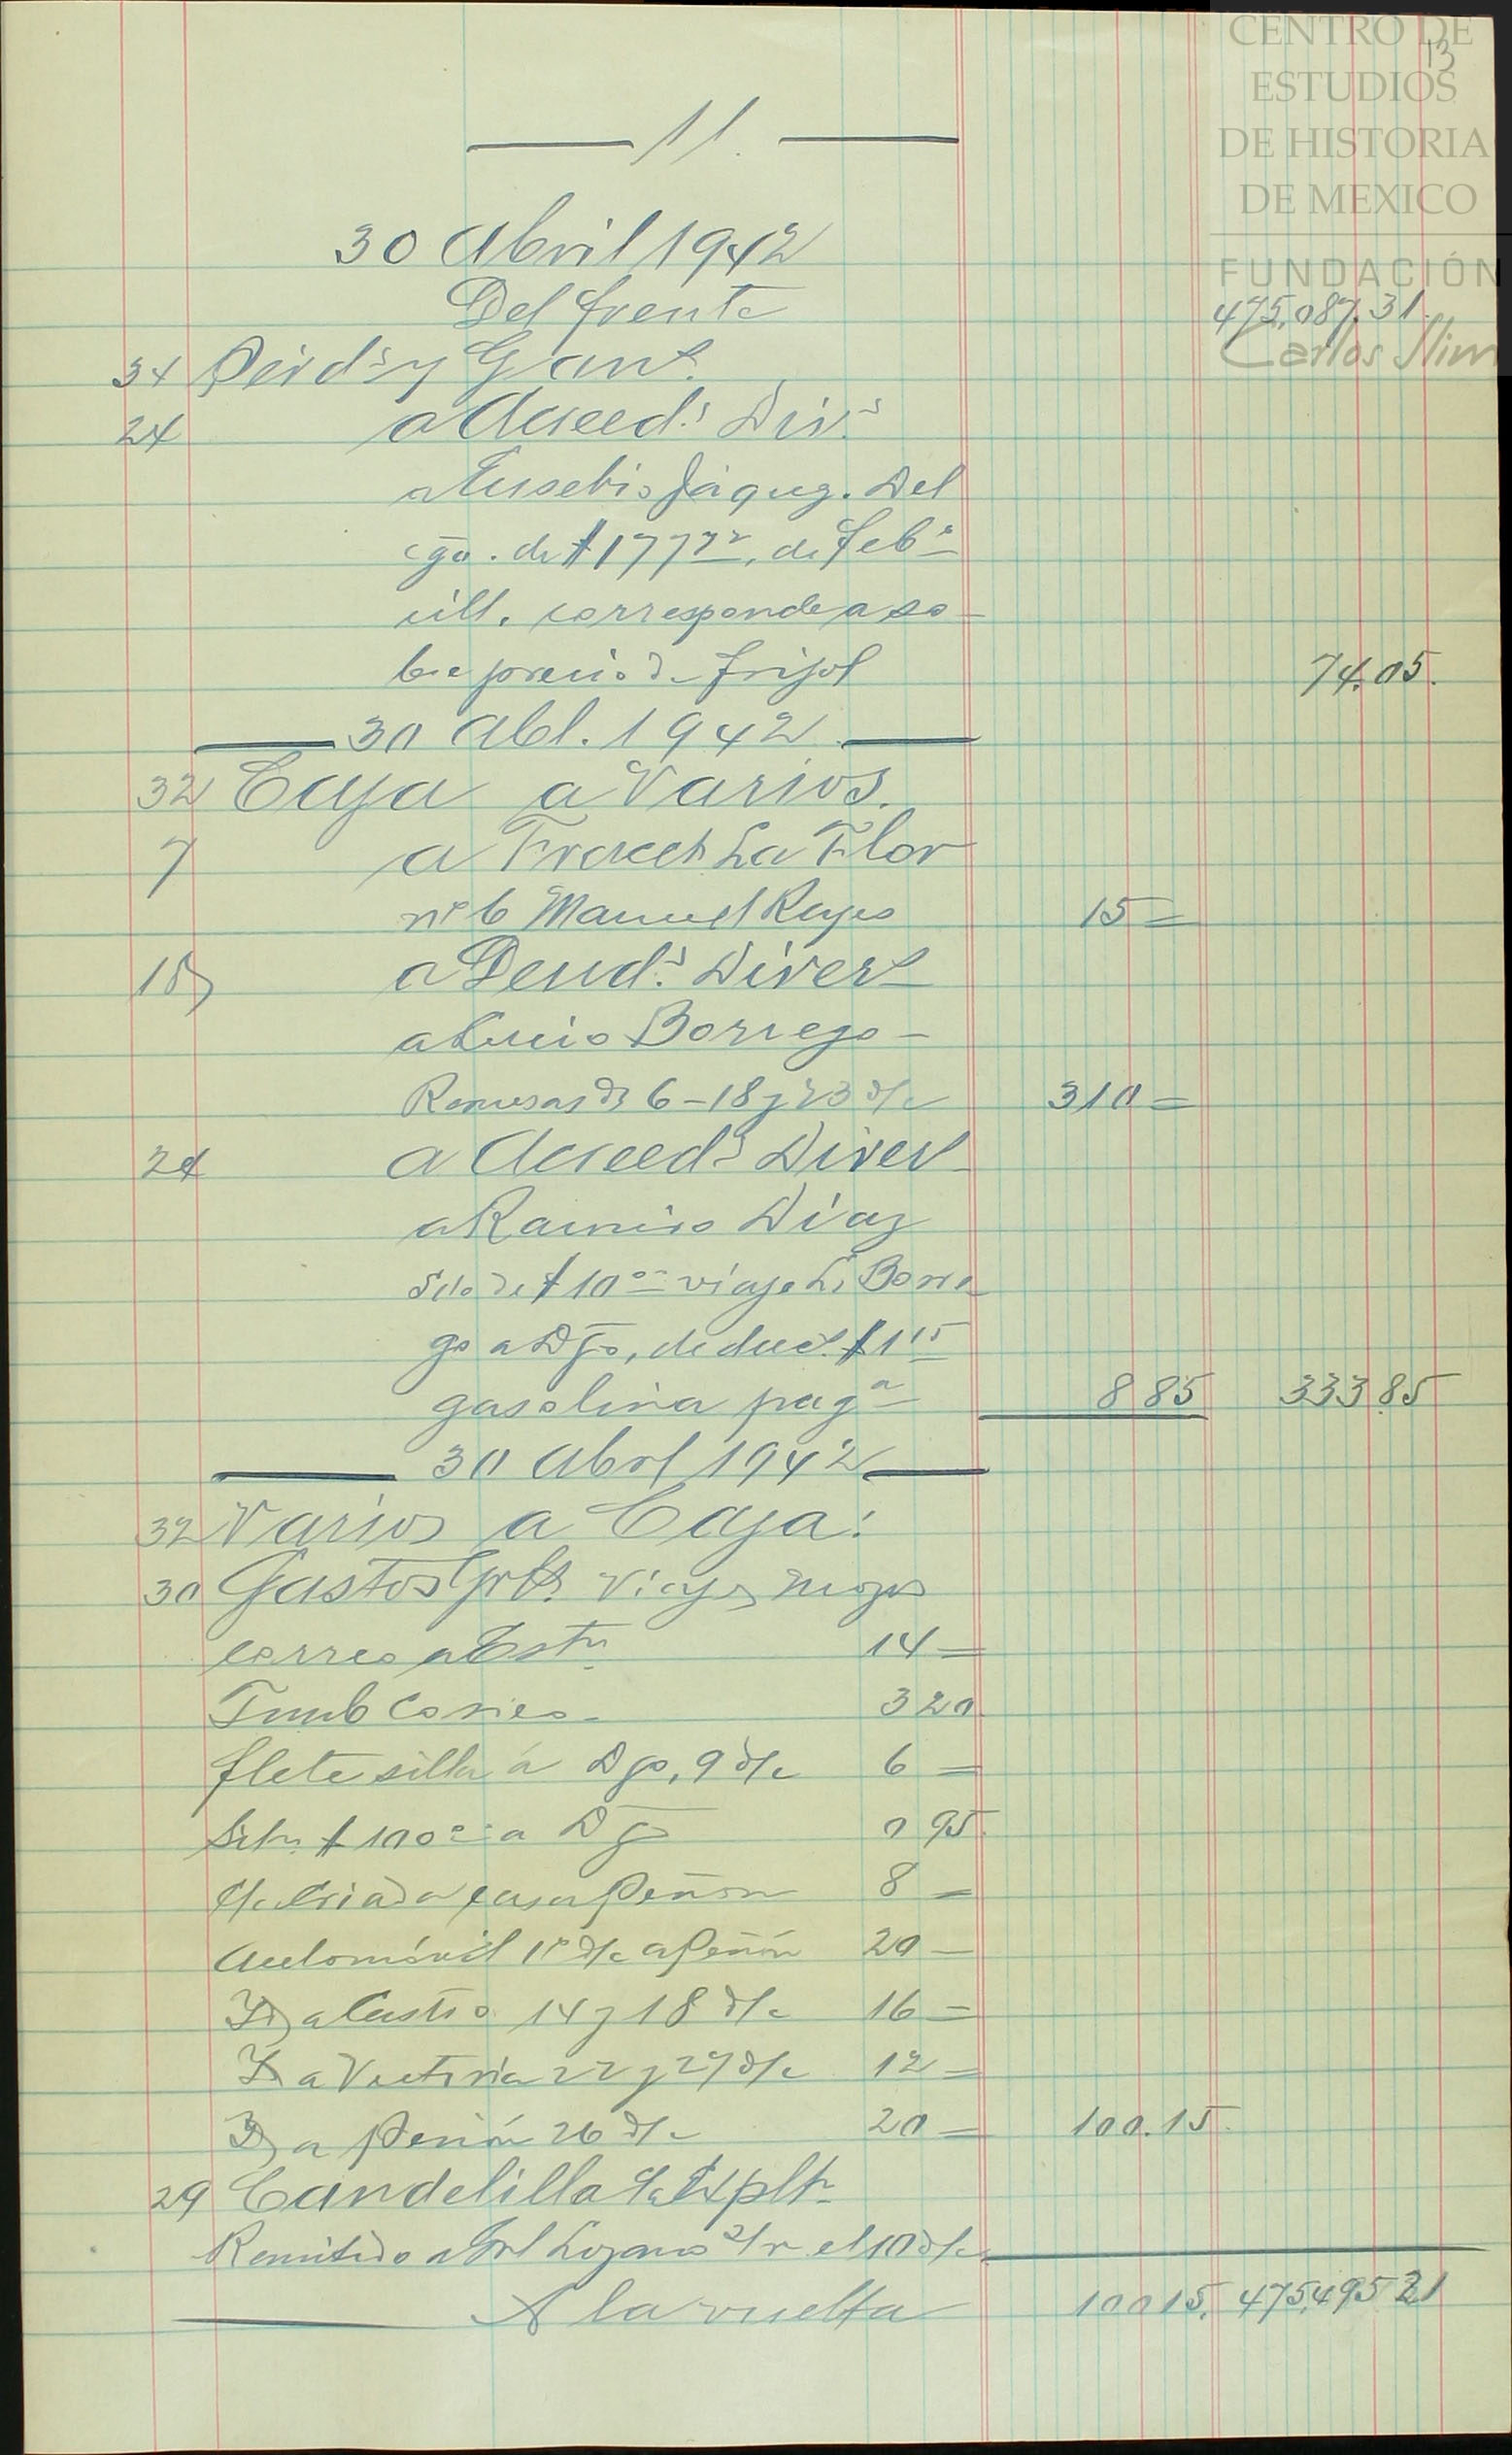 CENTRO DE
ESTUDIOS
DE HISTORIA
DE MEXICO
FUNDACIÓN
Carlos Slim
13
11.
30 Abril 1942
Del frente 475,087.31.
34 Pérds y Gans.
24 a Acreeds Divs
a Eusebio Jáquez. Del
cgo. de $177 22, de Feb
ult. corresponde a so-
bre precio de frijol 74.05.
30 Abl. 1942
32 Caja a Varios.
7 a Fracct La Flor
nº 6 Manuel Reyes 15=
18 a Deuds Divers
a Lucio Borrego-
Remesas de 6-18 y 23 d/c 310=
24 a Acreeds Divers
a Ramiro Díaz
Sdo de $10 00 viaje L. Borre
go a Dgo, deduc. $1 15
gasolina paga 8 85 333.85
30 Abrl 1942
32 Varios a Caja:
30 Gastos Grls. Viajes mozos
correo a Estn 14=
Timb Correo- 3 20
flete silla a Dgo, 9 d/c 6=
Situ $100 00 a Dgo 0 95
Criada casa Peñon 8=
Automóvil 1º d/c a Peñón 20-
ID a Castro 14 y 18 d/c 16=
ID a Victoria 22 y 27 d/c 12=
ID a Peñón 26 d/c 20= 100.15.
29 Candelilla Explt
Remitido a Lozano el 10 d/c
A la vuelta 100 15. 475,495 21